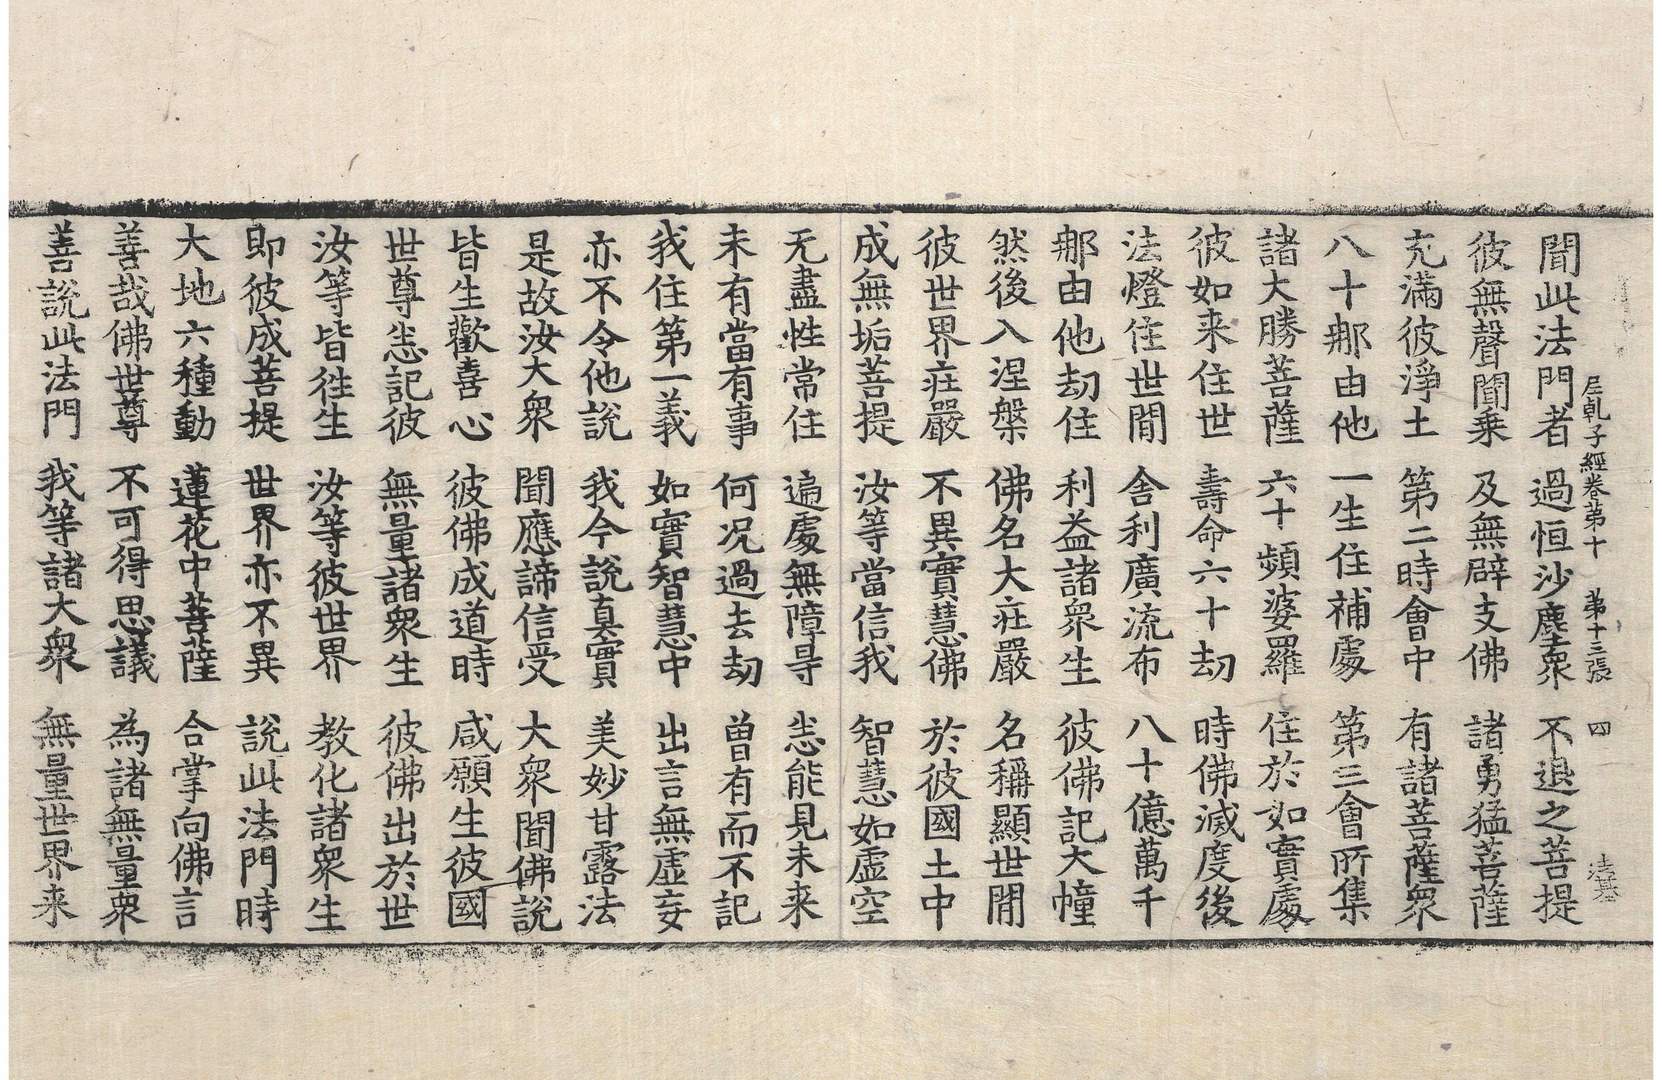 尼乹子經卷第十　第十三張　四
聞此法門者　過恒沙塵衆　不退之菩提
彼無聲聞乗　及無辟支佛　諸勇猛菩薩
充滿彼淨土　第二時會中　有諸菩薩衆
八十那由他　一生住補處　第三會所集
諸大勝菩薩　六十頻婆羅　住於如實處
彼如来住世　壽命六十劫　時佛滅度後
法燈住世間　舎利廣流布　八十億萬千
那由他劫住　利益諸衆生　彼佛記大幢
然後入涅槃　佛名大莊嚴　名稱顯世間
彼世界莊嚴　不異實慧佛　於彼國土中
成無垢菩提　汝等當信我　智慧如虛空
无盡性常住　遍處無障导　悉能見未来
未有當有事　何況過去劫　曽有而不記
我住第一義　如實智慧中　出言無虛妄
亦不令他說　我今說真實　美妙甘露法
是故汝大衆　聞應諦信受　大衆聞佛說
皆生歡喜心　彼佛成道時　咸願生彼國
世尊悉記彼　無量諸衆生　彼佛出於世
汝等皆徃生　汝等彼世界　教化諸衆生
即彼成菩提　世界亦不異　說此法門時
大地六種動　蓮花中菩薩　合掌向佛言
善哉佛世尊　不可得思議　為諸無量衆
善說此法門　我等諸大衆　無量世界来